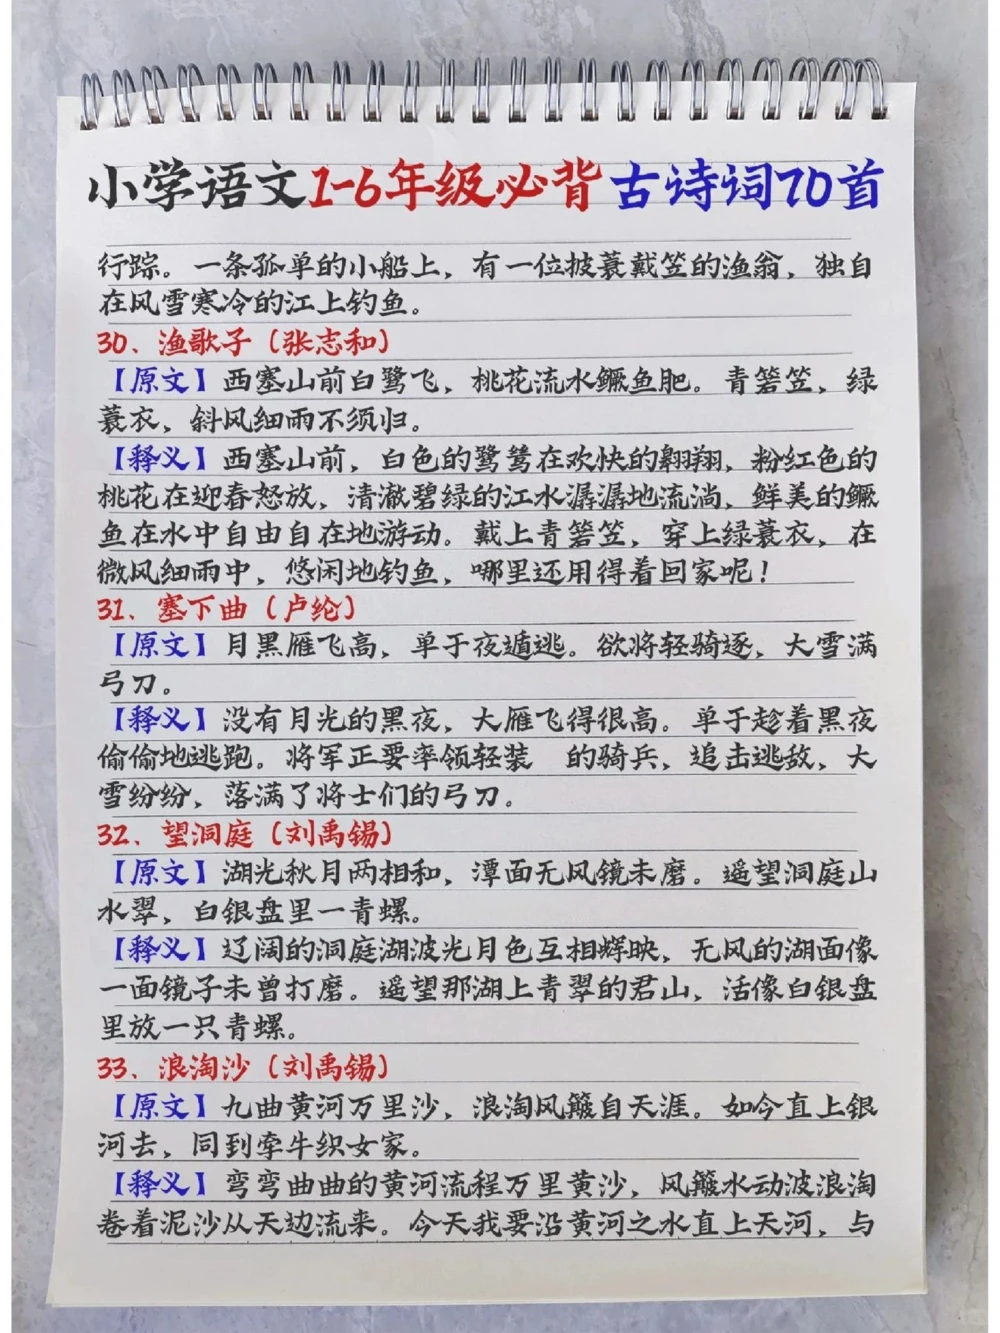 小学语文1-6年级必背古诗词70首
行踪。一条孤单的小船上，有一位披蓑戴笠的渔翁，独自
在风雪寒冷的江上钓鱼。
30、渔歌子（张志和）
【原文】西塞山前白鹭飞，桃花流水鳜鱼肥。青箬笠，绿
蓑衣，斜风细雨不须归。
【释义】西塞山前，白色的鹭鸶在欢快的翱翔，粉红色的
桃花在迎春怒放，清澈碧绿的江水潺潺地流淌，鲜美的鳜
鱼在水中自由自在地游动。戴上青箬笠，穿上绿蓑衣，在
微风细雨中，悠闲地钓鱼，哪里还用得着回家呢！
31、塞下曲（卢纶）
【原文】月黑雁飞高，单于夜遁逃。欲将轻骑逐，大雪满
弓刀。
【释义】没有月光的黑夜，大雁飞得很高。单于趁着黑夜
偷偷地逃跑。将军正要率领轻装 的骑兵，追击逃敌，大
雪纷纷，落满了将士们的弓刀。
32、望洞庭（刘禹锡）
【原文】湖光秋月两相和，潭面无风镜未磨。遥望洞庭山
水翠，白银盘里一青螺。
【释义】辽阔的洞庭湖波光月色互相辉映，无风的湖面像
一面镜子未曾打磨。遥望那湖上青翠的君山，活像白银盘
里放一只青螺。
33、浪淘沙（刘禹锡）
【原文】九曲黄河万里沙，浪淘风簸自天涯。如今直上银
河去，同到牵牛织女家。
【释义】弯弯曲曲的黄河流程万里黄沙，风簸水动波浪淘
卷着泥沙从天边流来。今天我要沿黄河之水直上天河，与